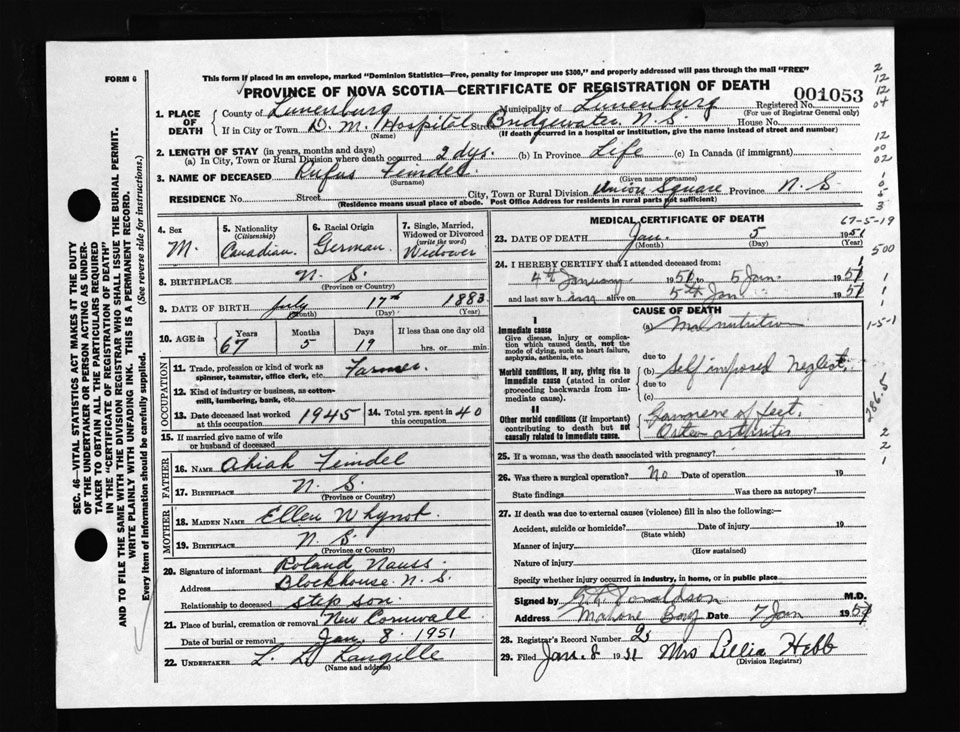 FORM 6
This form if placed in an envelope, marked "Dominion Statistics—Free, penalty for improper use $300," and properly addressed will pass through the mail "FREE"
PROVINCE OF NOVA SCOTIA—CERTIFICATE OF REGISTRATION OF DEATH
001053
1. PLACE OF DEATH
County of Lunenburg Municipality of Lunenburg Registered No.
(For use of Registrar General only)
If in City or Town D. M. Hospital Street Bridgewater, N. S. House No.
(Name) (If death occurred in a hospital or institution, give the name instead of street and number)
2. LENGTH OF STAY (in years, months and days)
(a) In City, Town or Rural Division where death occurred 2 dys. (b) In Province Life (c) In Canada (if immigrant)
3. NAME OF DECEASED Rufus Feindel
(Surname) (Given name or names)
RESIDENCE No. Street City, Town or Rural Division Union Square Province N. S.
(Residence means usual place of abode. Post Office Address for residence in rural parts not sufficient)
4. Sex M.
5. Nationality (Citizenship) Canadian
6. Racial Origin German
7. Single, Married, Widowed or Divorced (write the word) Widower
8. BIRTHPLACE N. S.
(Province or Country)
9. DATE OF BIRTH July 17th 1883
(Month) (Day) (Year)
10. AGE in Years 67 Months 5 Days 19 If less than one day old hrs. or min.
OCCUPATION
11. Trade, profession or kind of work as spinner, teamster, office clerk, etc. Farmer.
12. Kind of industry or business, as cotton-mill, lumbering, bank, etc.
13. Date deceased last worked at this occupation 1945
14. Total yrs. spent in this occupation 40
15. If married give name of wife or husband of deceased
FATHER
16. NAME Ahiah Feindel
17. BIRTHPLACE N. S.
(Province or Country)
MOTHER
18. MAIDEN NAME Ellen Whynot
19. BIRTHPLACE N. S.
(Province or Country)
20. Signature of informant Roland Nauss
Address Blockhouse N. S.
Relationship to deceased step son.
21. Place of burial, cremation or removal New Cornwall
Date of burial or removal Jan. 8 1951
22. UNDERTAKER L. D. Langille
(Name and address)
MEDICAL CERTIFICATE OF DEATH
67-5-19
23. DATE OF DEATH Jan. 5 1951
(Month) (Day) (Year)
24. I HEREBY CERTIFY that I attended deceased from:
4th January 1951 to 5 Jan 1951
and last saw h im alive on 5th Jan 1951
CAUSE OF DEATH
I
Immediate cause
Give disease, injury or complication which caused death, not the mode of dying, such as heart failure, asphyxia, asthenia, etc.
(a) Malnutrition
due to
Morbid conditions, if any, giving rise to immediate cause (stated in order proceeding backwards from immediate cause).
(b) Self imposed Neglect.
due to
(c)
II
Other morbid conditions (if important) contributing to death but not causally related to immediate cause.
Gangrene of feet.
Osteo arthritis
25. If a woman, was the death associated with pregnancy?
26. Was there a surgical operation? No Date of operation 19
State findings Was there an autopsy?
27. If death was due to external causes (violence) fill in also the following:—
Accident, suicide or homicide? Date of injury 19
(State which)
Manner of injury
(How sustained)
Nature of injury
Specify whether injury occurred in industry, in home, or in public place
Signed by Donaldson M.D.
Address Mahone Bay Date 7 Jan 1951
28. Registrar's Record Number 2
29. Filed Jan. 8 1951 Mrs Lillia Hebb
(Division Registrar)
SEC. 46—VITAL STATISTICS ACT MAKES IT THE DUTY
OF THE UNDERTAKER OR PERSON ACTING AS UNDER-
TAKER TO OBTAIN ALL THE PARTICULARS REQUIRED
IN THE "CERTIFICATE OF REGISTRATION OF DEATH"
AND TO FILE THE SAME WITH THE DIVISION REGISTRAR WHO SHALL ISSUE THE BURIAL PERMIT.
WRITE PLAINLY WITH UNFADING INK. THIS IS A PERMANENT RECORD.
Every item of Information should be carefully supplied. (See reverse side for instructions.)
2
12
12
04
12
00
02
1
0
5
3
500
1
1
1
1-5-1
286.5
2
2
1